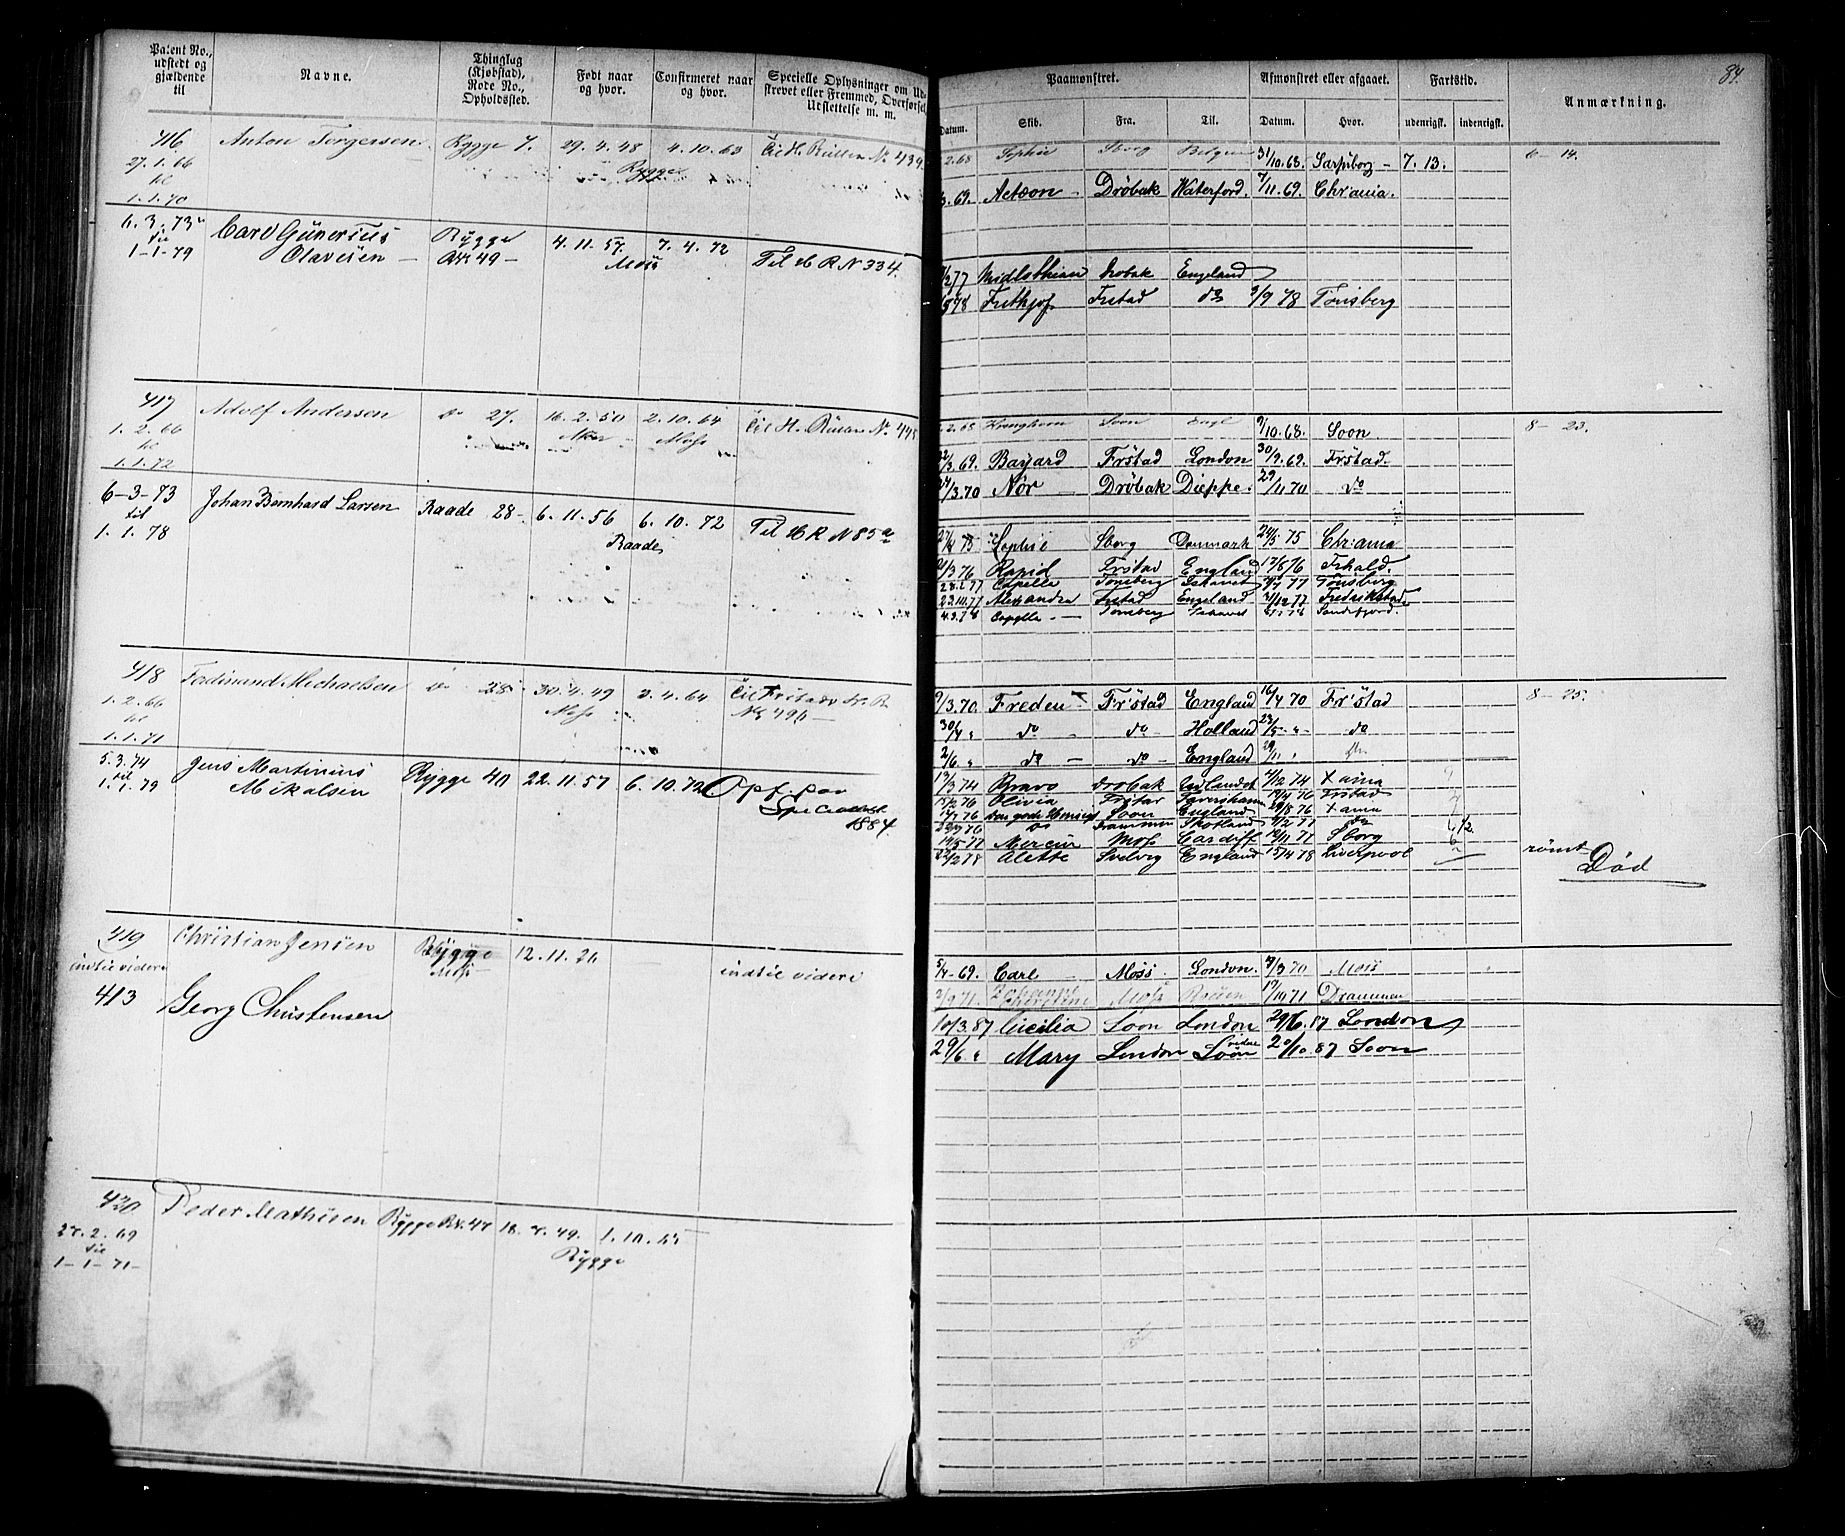 Patent No., udstedt og gjældende til
Navne.
Thinglag (Kjøbstad), Rode No., Opholdssted.
Født naar og hvor.
Confirmeret naar og hvor.
Specielle Oplysninger om Udskrevet eller Fremmed, Overførsel, Udslettelse m. m.
416 Anton Torgersen Rygge 7. 29.4.48 4.10.63 Til H. Rullen No 439
27.1.66 Rygge
til
1.1.70
6.3.73 Carl Gunerius Rygge 4.11.57 7.4.72 Til HRN 334
til Olavesen 49 Moss
1-1-79
417 Adolf Andersen do 27. 16.2.50 2.10.64 Til H. Rullen No
1.2.66 Moss
til
1.1.72
6-3-73 Johan Bernhard Larsen Raade 28- 6.11.56 6.10.72 Til HRN 85a
til Raade
1.1.78
418 Ferdinand Michaelsen do 28 30.4.49 2.4.64 Til Frstads
1.2.66 Moss
til
1.1.71
5.3.74 Jens Martinius Rygge 40 22.11.57 6.10.72 Opf. paa
til Mikalsen
1.1.79 1884
419 Christian Jensen Rygge 12.11.26
indtil videre Moss indtil videre
413 Georg Christensen
420 Peder Mathisen Rygge 47 18. 49. 1.10.65
2.69 Rygge
til
1-1-71-
84.
Paamønstret.
Afmønstret eller afgaaet.
Fartstid.
Anmærkning.
Datum. Skib. Fra. Til. Datum. Hvor. udenrigsk. indenrigsk.
2.68 Sophie Sborg Belgien 31/10.68. Sarpsborg - 7. 13. 6-14.
3.69. Actæon Drøbak Waterford. 7/11.69. Chr'ania.
2/77 Midlothian Drobak England
78 Frithjof Frstad do 3/9 78 Tønsberg
2.68 Kronghorn Soon Engl 9/10.68. Soon 8-23.
3.69. Bayard Frstad London 30/9.69. Frstad.
3.70 Nör Drøbak Dieppe. 29/11 70 do
75 Sophie Sborg Danmark 24/5 75 Chr:ania
3 76 Rapid Frstad England 17/8 76 Frhald.
77 Capella Tønsberg Ishavet 77 Tønsberg
22.10.77 Alexandra Frstad England 12 77 Fredrikstad
4.3.78 Capella Tønsberg Ishavet 78 Sandefjord.
9/3.70. Freden Fr'stad England 16/4 70 Fr'stad 8-25.
30/4 " do do Holland 23/5 - " - do
2/6 " do do England 29/11 "
13/3 74 Bravo Drøbak Udlandet 4/12 74 Xania
15/2 76 Olivia Frstad 19/4 76 Frstad
76 den gode Hensigt Soon England 29/8 76 Xania
76 do Drammen Skotland 2 77 do
5 77 Mercur Moss Cardiff 11 77 Sborg
2 78 Alette Svelvig England 15/4 78 Liverpool rømt
Død
5/4-69. Carl Moss. London. 3 70 Moss
3/9 71. Christine Moss Rouen 17/10 71 Drammen
10/3.87 Cicilia Soon London 29/6.87 London
29/6 " Mary London Soon 2/10.87 Soon